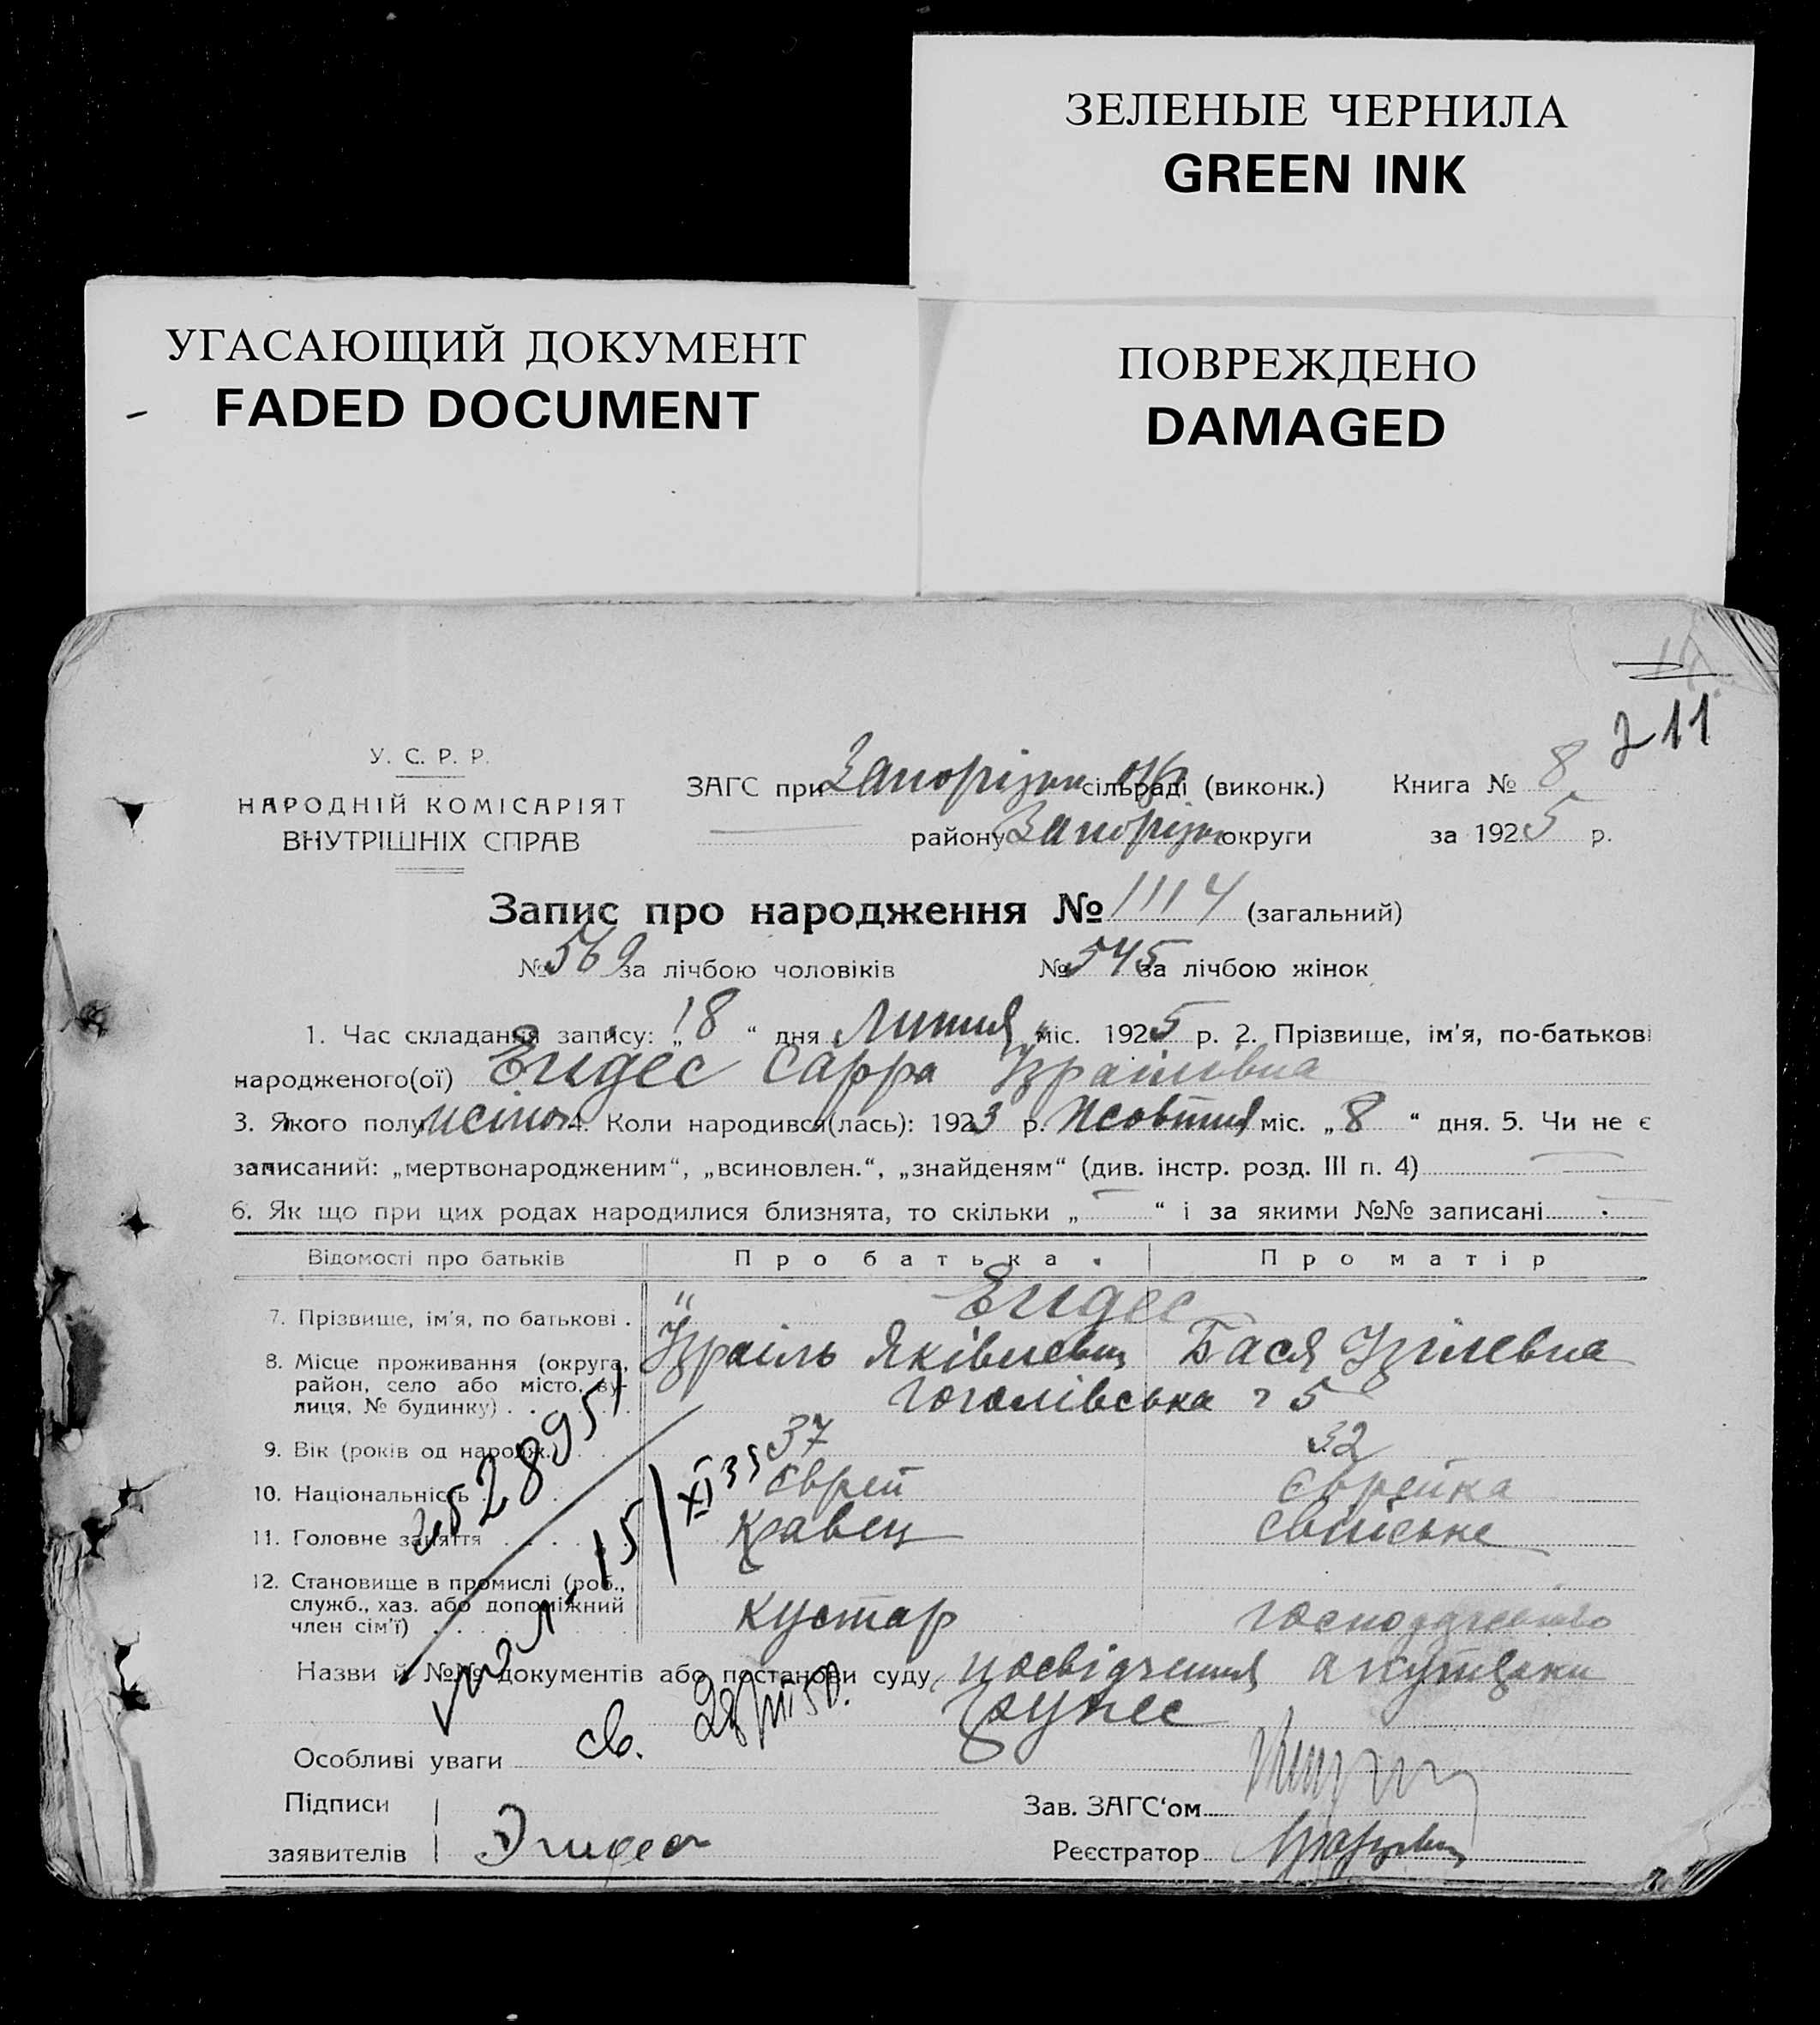 ЗЕЛЕНЫЕ ЧЕРНИЛА
GREEN INK
УГАСАЮЩИЙ ДОКУМЕНТ
FADED DOCUMENT
ПОВРЕЖДЕНО
DAMAGED
211
У. С. Р. Р.
НАРОДНІЙ КОМІСАРІЯТ
ВНУТРІШНІХ СПРАВ
ЗАГС при Запорізьк сільраді (виконк.) Книга № 8
району Запорізьк округи за 1925 р.
Запис про народження № 1114 (загальний)
№ 569 за лічбою чоловіків № 545 за лічбою жінок
1. Час складання запису: „18“ дня Липня міс. 1925 р. 2. Прізвище, ім'я, по-батькові
народженого(ої) Ендес Сарра Ізраілівна
3. Якого полу жіноч 4. Коли народився(лась): 1923 р. Жовтня міс. „8“ дня. 5. Чи не є
записаний: „мертвонародженим“, „всиновлен.“, „знайденям“ (див. інстр. розд. III п. 4)
6. Як що при цих родах народилися близнята, то скільки „ “ і за якими №№ записані
Відомості про батьків Про батька Про матір
7. Прізвище, ім'я, по батькові . Ендес
Ізраіль Яківлевич Бася
8. Місце проживання (округа, район, село або місто, вулиця, № будинку) . Гоголівська 5
9. Вік (років од народж. 37 32
10. Національність Єврей Єврейка
11. Головне заняття Кравець Свійське
12. Становище в промислі (роб., служб., хаз. або допоміжний член сім'ї) Кустар господарство
2528951
15/XI 35
Назви й №№ документів або постанови суду посвідчення акушерки
Особливі уваги св.
Підписи
заявителів
Зав. ЗАГС'ом
Реєстратор